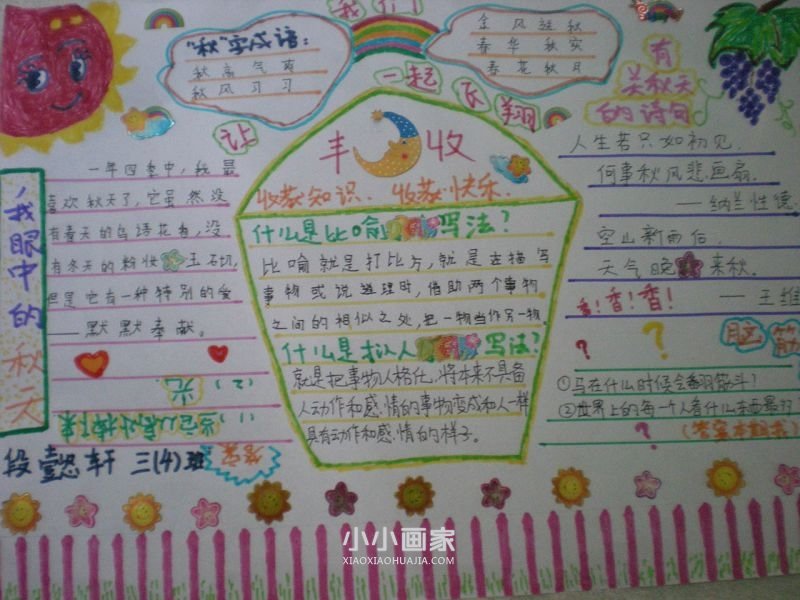 我们
一起飞翔
让
“秋”实成语：
秋高气爽
秋风习习
金风送秋
春华秋实
春花秋月
有
关秋天
的诗句
人生若只如初见
何事秋风悲画扇
——纳兰性德
空山新雨后
天气晚来秋。
——王维
我眼中的秋天
一年四季中，我最
喜欢秋天了，它虽然没
有春天的鸟语花香，没
有冬天的粉妆玉砌，
但是它有一种特别的爱
——默默奉献。
丰收
收获知识、收获快乐
什么是比喻写法？
比喻就是打比方，就是在描写
事物或说道理时，借助两个事物
之间的相似之处，把一物当作另一物。
什么是拟人写法？
就是把事物人格化，将本来不具备
人动作和感情的事物变成和人一样
具有动作和感情的样子。
香！香！香！
? ? ?
脑筋
①马在什么时候会翻筋斗？
②世界上的每一个人看什么东西最
?
(2)、光
(1)、当它
答案
段懿轩 三(4)班
小小画家
XIAOXIAOHUAJIA.COM